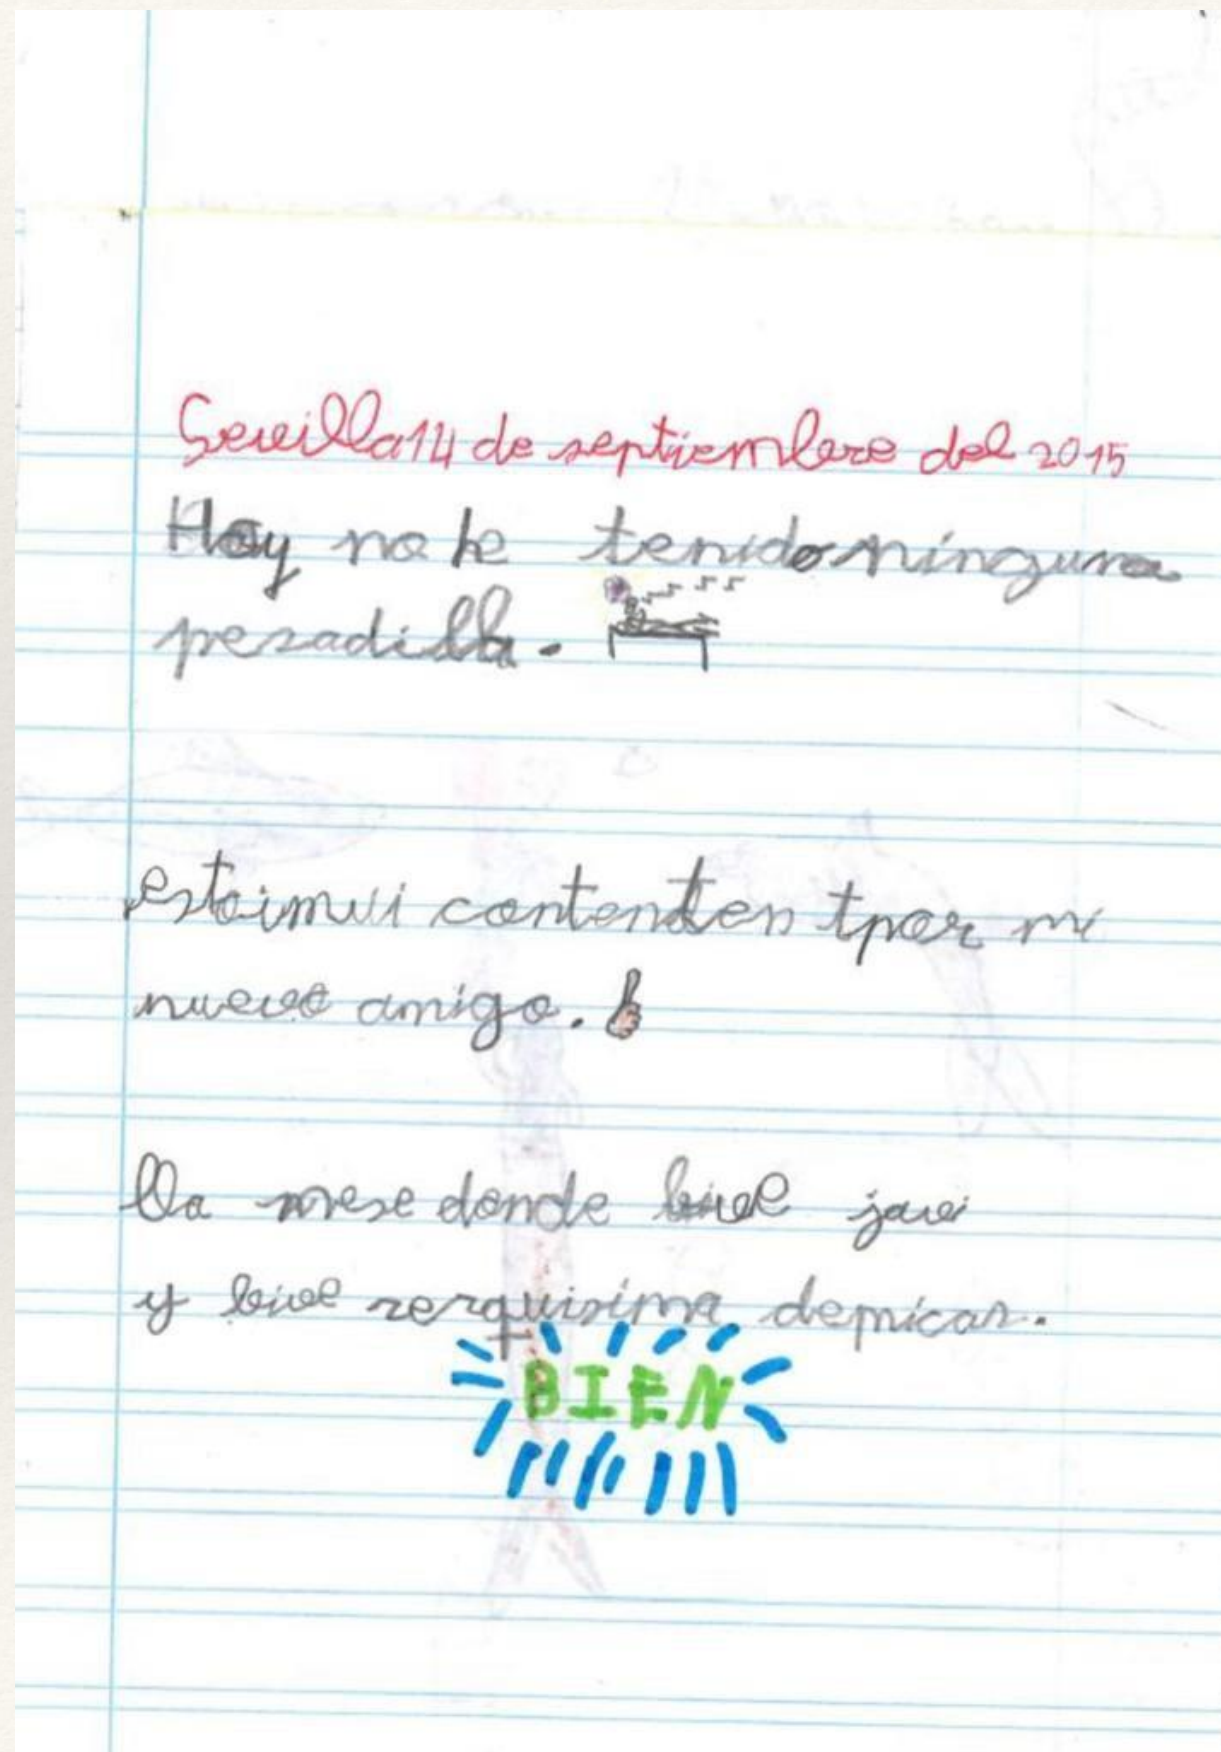 Sevilla14 de septiembre del 2015
Hoy no he tenidoninguna
pesadilla.
estoimui contentten tpor mi
nuevo amigo.
lla mese donde bive javi
y bive zerquisima demicas.
BIEN